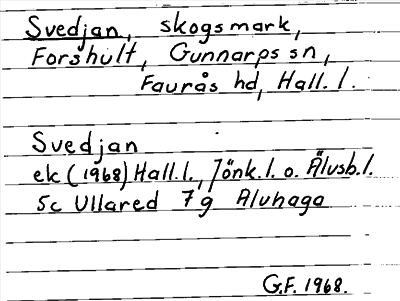 Svedjan, skogsmark,
Forshult, Gunnarps sn,
Faurås hd, Hall. l.
Svedjan
ek (1968) Hall.l., Jönk.l. o. Älvsb.l.
5c Ullared 7g Alvhaga
G.F. 1968.